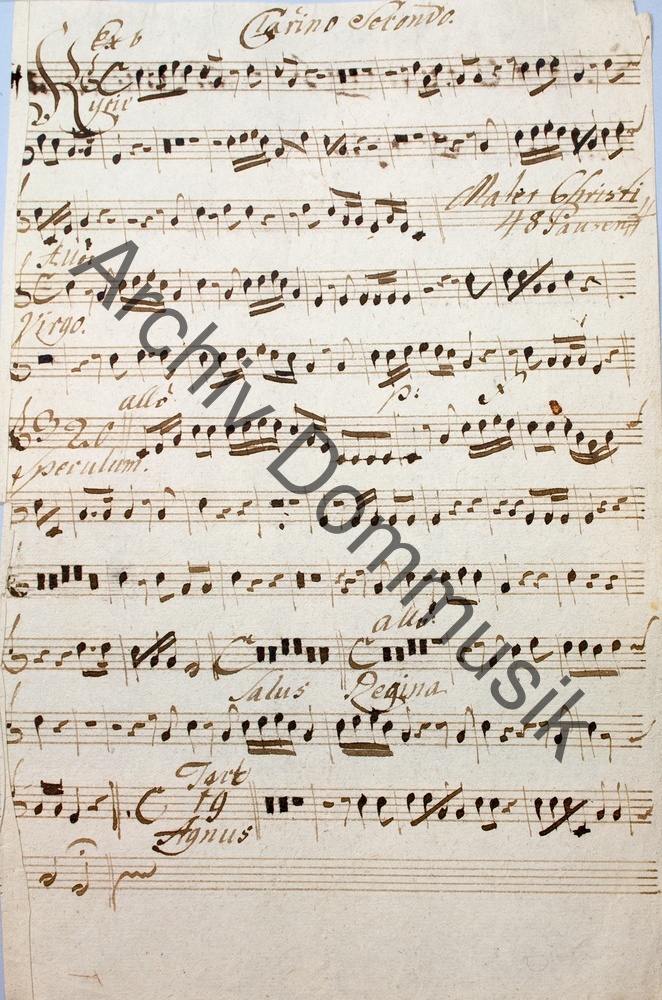 Ex b Clarino Secondo.
2. Kyrie
Mater Christi
48 Pausen
Allo
Virgo.
p:
allo
Speculum.
allo
Salus Regina
Tact
19
Agnus
Archiv Dommusik